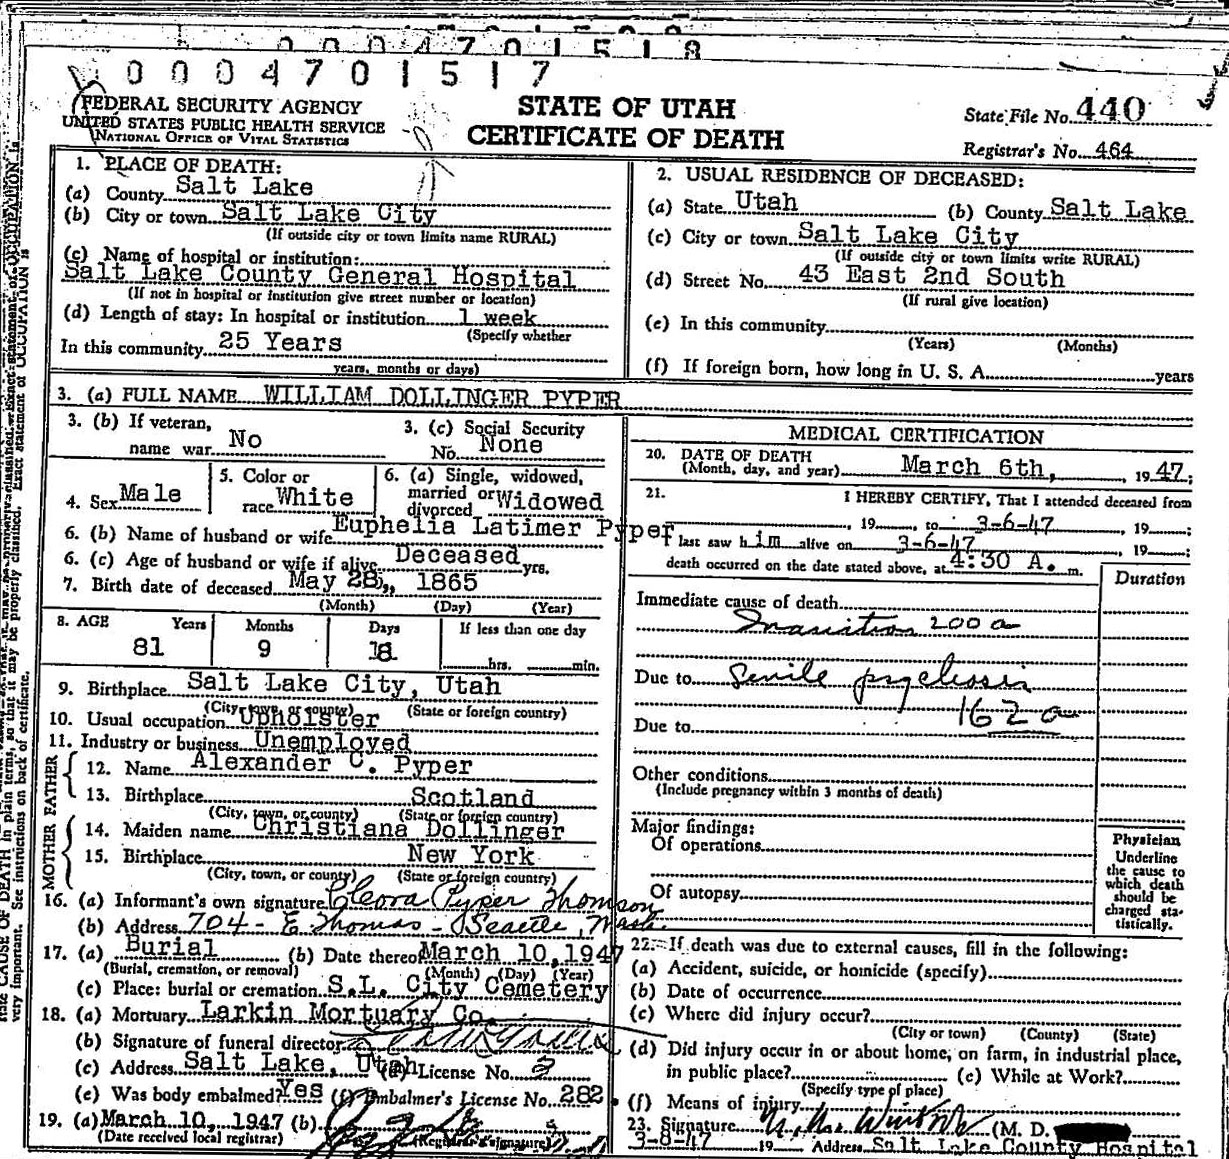 0 0 0 4 7 0 1 5 1 8
0 0 0 4 7 0 1 5 1 7
FEDERAL SECURITY AGENCY
UNITED STATES PUBLIC HEALTH SERVICE
NATIONAL OFFICE OF VITAL STATISTICS
STATE OF UTAH
CERTIFICATE OF DEATH
State File No. 440
Registrar's No. 464
1. PLACE OF DEATH:
(a) County Salt Lake
(b) City or town Salt Lake City
(If outside city or town limits name RURAL)
(c) Name of hospital or institution:
Salt Lake County General Hospital
(If not in hospital or institution give street number or location)
(d) Length of stay: In hospital or institution 1 week
(Specify whether
In this community 25 Years
years, months or days)
2. USUAL RESIDENCE OF DECEASED:
(a) State Utah (b) County Salt Lake
(c) City or town Salt Lake City
(If outside city or town limits write RURAL)
(d) Street No. 43 East 2nd South
(If rural give location)
(e) In this community
(Years) (Months)
(f) If foreign born, how long in U. S. A. years
3. (a) FULL NAME WILLIAM DOLLINGER PYPER
3. (b) If veteran,
name war No
3. (c) Social Security
No. None
4. Sex Male
5. Color or
race White
6. (a) Single, widowed,
married or
divorced Widowed
6. (b) Name of husband or wife Euphelia Latimer Pyper
6. (c) Age of husband or wife if alive Deceased yrs.
7. Birth date of deceased May 28, 1865
(Month) (Day) (Year)
8. AGE Years Months Days If less than one day
81 9 8 hrs. min.
9. Birthplace Salt Lake City, Utah
(City, town, or county) (State or foreign country)
10. Usual occupation Upholster
11. Industry or business Unemployed
FATHER
12. Name Alexander C. Pyper
13. Birthplace Scotland
(City, town, or county) (State or foreign country)
MOTHER
14. Maiden name Christiana Dollinger
15. Birthplace New York
(City, town, or county) (State or foreign country)
16. (a) Informant's own signature Cleora Pyper Thomson
(b) Address 704 - E Thomas - Seattle, Wash.
17. (a) Burial (b) Date thereof March 10, 1947
(Burial, cremation, or removal) (Month) (Day) (Year)
(c) Place: burial or cremation S.L. City Cemetery
18. (a) Mortuary Larkin Mortuary Co.
(b) Signature of funeral director
(c) Address Salt Lake, Utah (d) License No. 3
(e) Was body embalmed? Yes (f) Embalmer's License No. 282
19. (a) March 10, 1947 (b)
(Date received local registrar) (Registrar's signature)
MEDICAL CERTIFICATION
20. DATE OF DEATH
(Month, day, and year) March 6th, 1947;
21. I HEREBY CERTIFY, That I attended deceased from
, 19 , to 3-6-47 , 19 ;
I last saw him alive on 3-6-47 , 19 ;
death occurred on the date stated above, at 4:30 A. m.
Duration
Immediate cause of death
Inanition 200 a
Due to Senile psychosis
162 a
Due to
Other conditions
(Include pregnancy within 3 months of death)
Major findings:
Of operations
Of autopsy
Physician
Underline
the cause to
which death
should be
charged sta-
tistically.
22. If death was due to external causes, fill in the following:
(a) Accident, suicide, or homicide (specify)
(b) Date of occurrence
(c) Where did injury occur?
(City or town) (County) (State)
(d) Did injury occur in or about home, on farm, in industrial place,
in public place? (e) While at Work?
(Specify type of place)
(f) Means of injury
23. Signature (M. D.
3-8-47 19 Address Salt Lake County Hospital